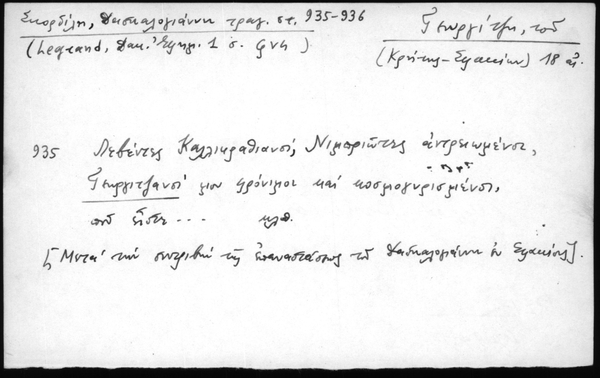 Σκορδίλη, Δασκαλογιάννη τραγ. στ. 935-936
(Legrand, Σ. 1 σ. ϛνη)
Γεωργίτζη, τοῦ
(Κρήτης-Σφακίων) 18 αἰ.
935 Λεβέντες Καλλικρατιανοί, Νιμπριῶτες ἀντρειωμένοι,
Γεωργιτζιανοί μου φρόνιμοι καί κοσμογυρισμένοι,
ποῦ εἶστε... κλπ.
[Μετά τήν συντριβήν τῆς ἐπαναστάσεως τοῦ Δασκαλογιάννη ἐν Σφακίοις].